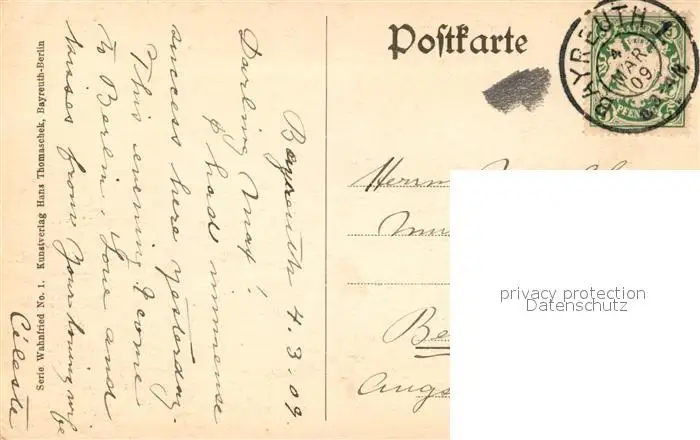 Postkarte
BAYREUTH 1
4
MAR
09
BAYERN
5
PFENNIG
Herrn
privacy protection
Datenschutz
Be
Augs
Bayreuth 4.3.09.
Darling Max!
I had immense
success here yesterday.
This evening I come
to Berlin. Love and
kisses from Your loving wife
Céleste
Serie Wahnfried No. 1. Kunstverlag Hans Thomaschek, Bayreuth-Berlin